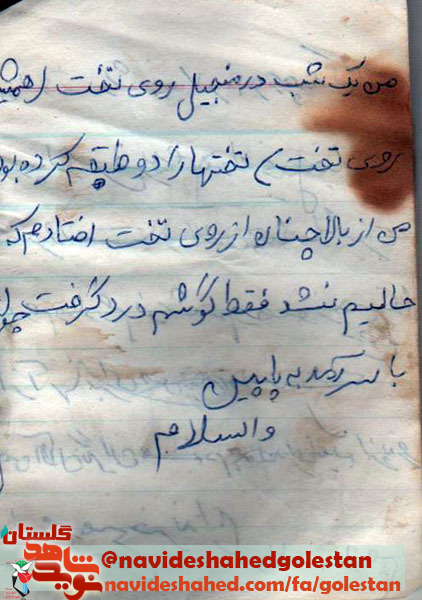 من یک شب در منجیل روی تخت (همیشه
روی تخت) تختها را دو طبقه کرده بود
من از بالا چنان از روی تخت افتادم که
حالیم نشد فقط گوشم درد گرفت چون
با سر آمدم به پایین
والسلام
گلستان
نوید شاهد
@navideshahedgolestan
navideshahed.com/fa/golestan